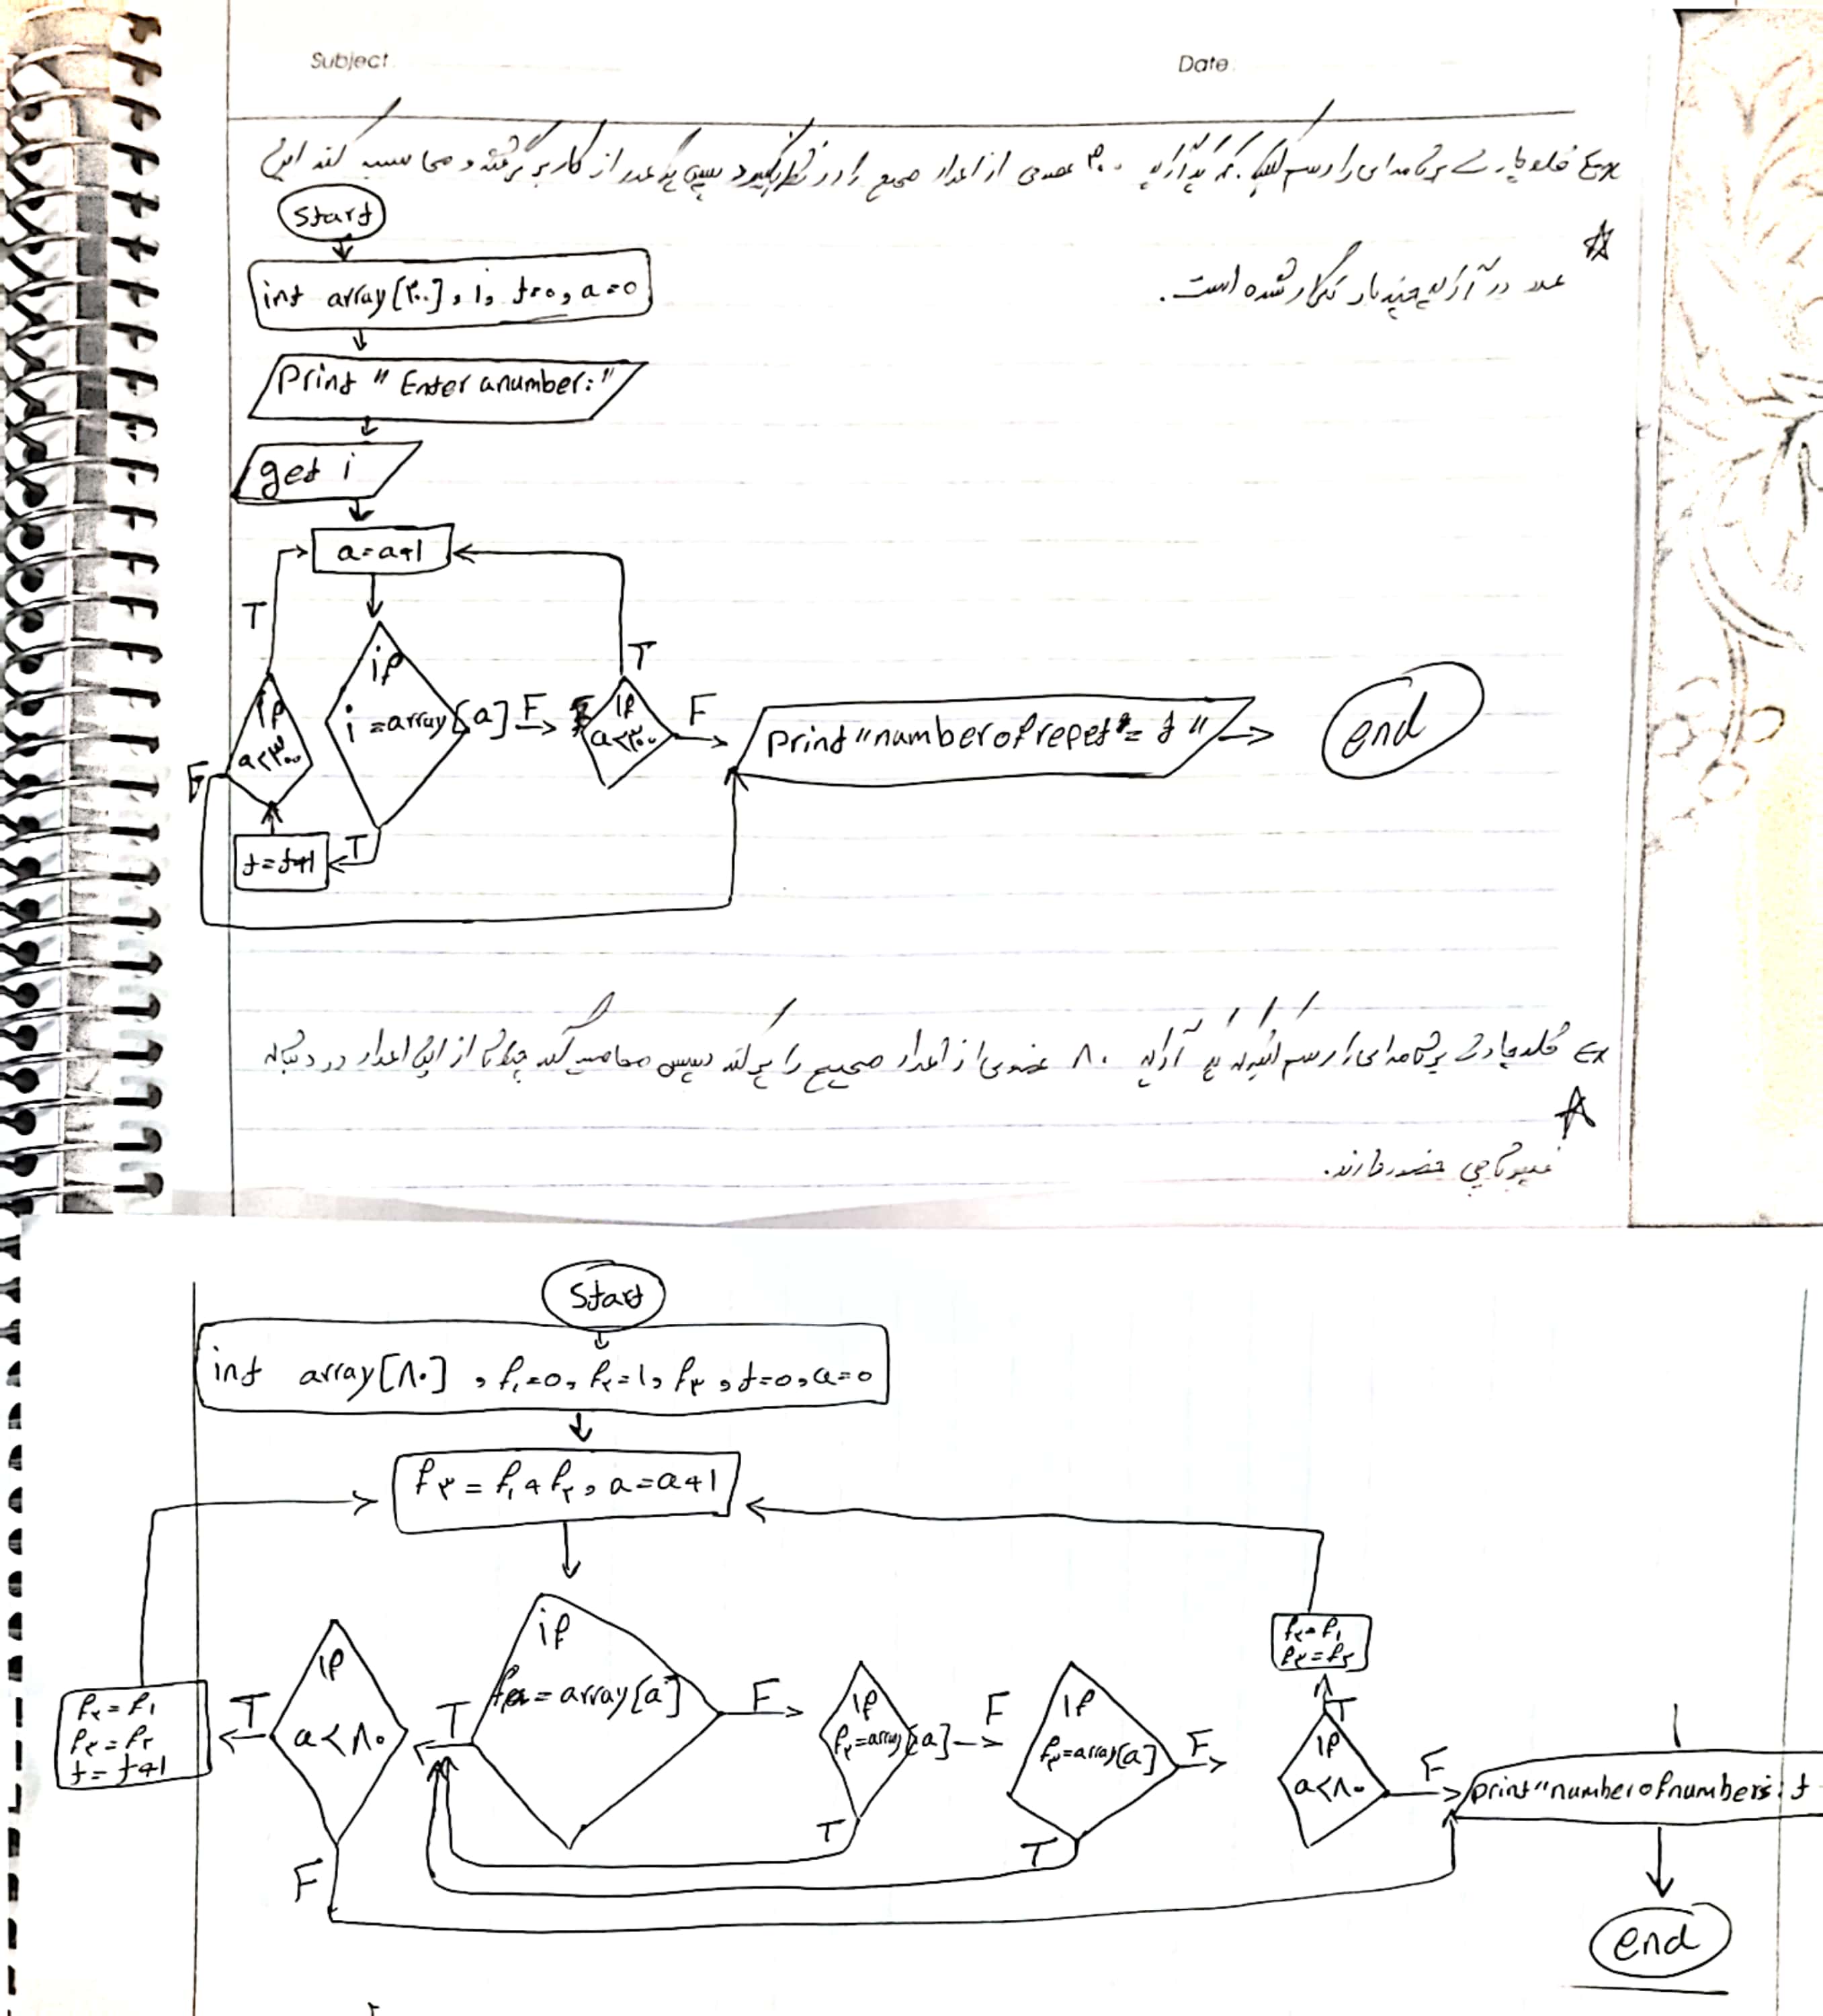 Subject
Date
Ex فلوچارت برنامه ای را رسم کنید که یک آرایه ۳۰۰ عضوی از اعداد صحیح را در نظر بگیرد سپس یک عدد از کاربر گرفته و محاسبه کند این
عدد در آرایه چند بار تکرار شده است.
Start
int array[۳۰۰], i, t=0, a=0
Print "Enter a number:"
get i
a=a+1
T
if
i=array[a]
F
if
a<۳۰۰
T
F
if
a<۳۰۰
F
T
t=t+1
print "number of repet = t"
end
Ex فلوچارت برنامه ای را رسم کنید که یک آرایه ۸۰ عضوی از اعداد صحیح را پر کند سپس محاسبه کند چندتا از این اعداد در دنباله
فیبوناچی حضور دارند.
Start
int array[۸۰], f۱=0, f۲=1, f۳, t=0, a=0
f۳=f۱+f۲, a=a+1
if
=array[a]
F
if
f۲=array[a]
F
if
f۳=array[a]
F
if
a<۸۰
T
f۲=f۱
f۳=f۲
F
T
T
T
if
a<۸۰
T
F
f۲=f۱
f۳=f۲
t=t+1
print "number of numbers: t
end